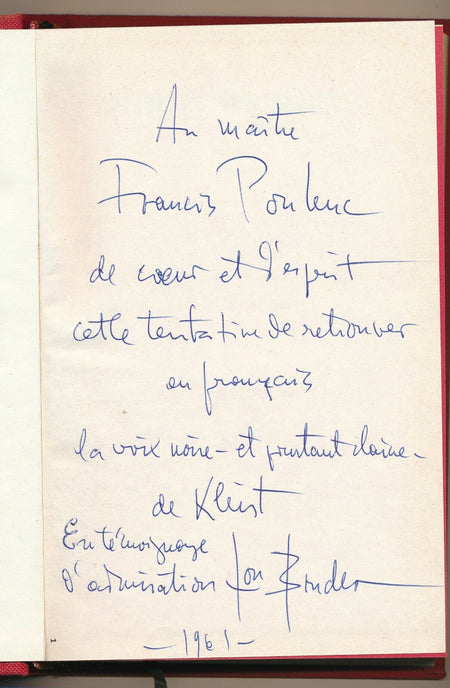 Au maître
Francis Poulenc
de coeur et d'esprit
cette tentative de retrouver
en français
la voix noire - et pourtant claire -
de Kleist
En témoignage
d'admiration
- 1961 -